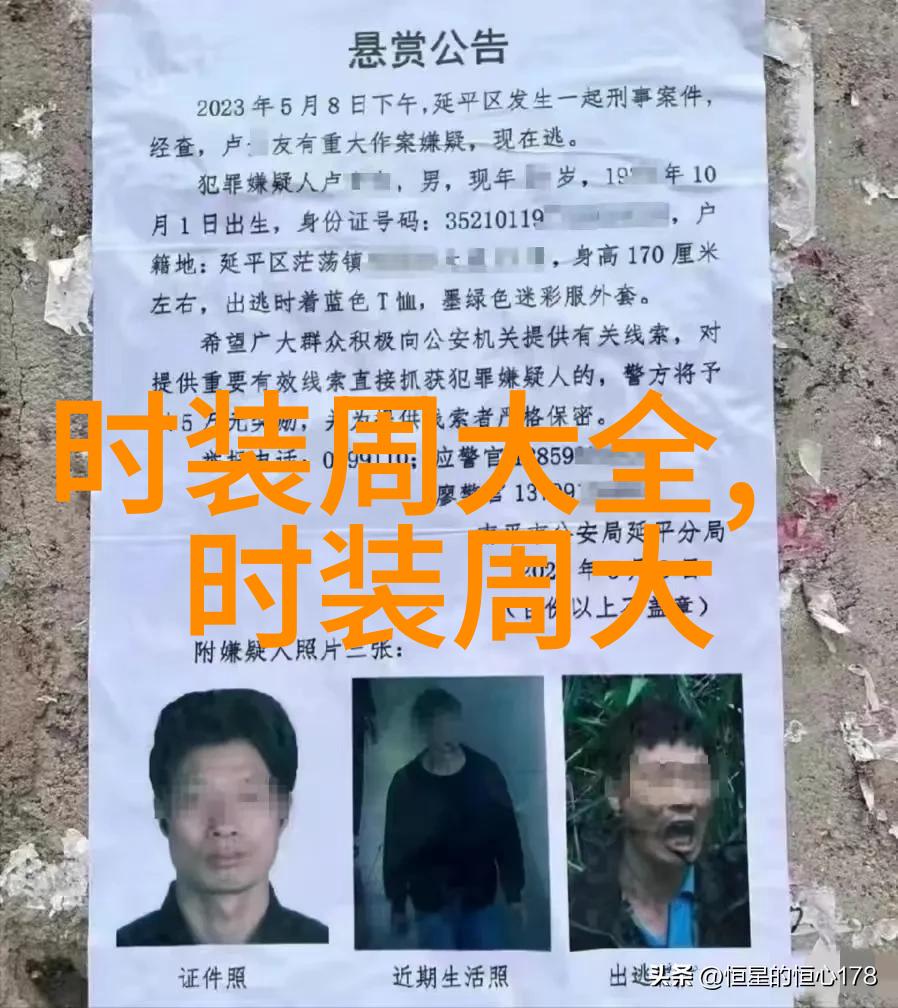 悬赏公告
2023年5月8日下午,延平区发生一起刑事案件,
经查，卢 友有重大作案嫌疑，现在逃。
犯罪嫌疑人卢 ，男，现年 岁，19 年10
月1日出生，身份证号码：35210119 ，户
籍地：延平区茫荡镇 ，身高170厘米
左右，出逃时着蓝色T恤，墨绿色迷彩服外套。
希望广大群众积极向公安机关提供有关线索，对
提供重要有效线索直接抓获犯罪嫌疑人的，警方将予
5万元奖励，并为提供线索者严格保密。
时装周大全,
应警官 859
廖警官 137
公安局延平分局
时装周大
附嫌疑人照片三张：
证件照
近期生活照
出逃
头条 @恒星的恒心178